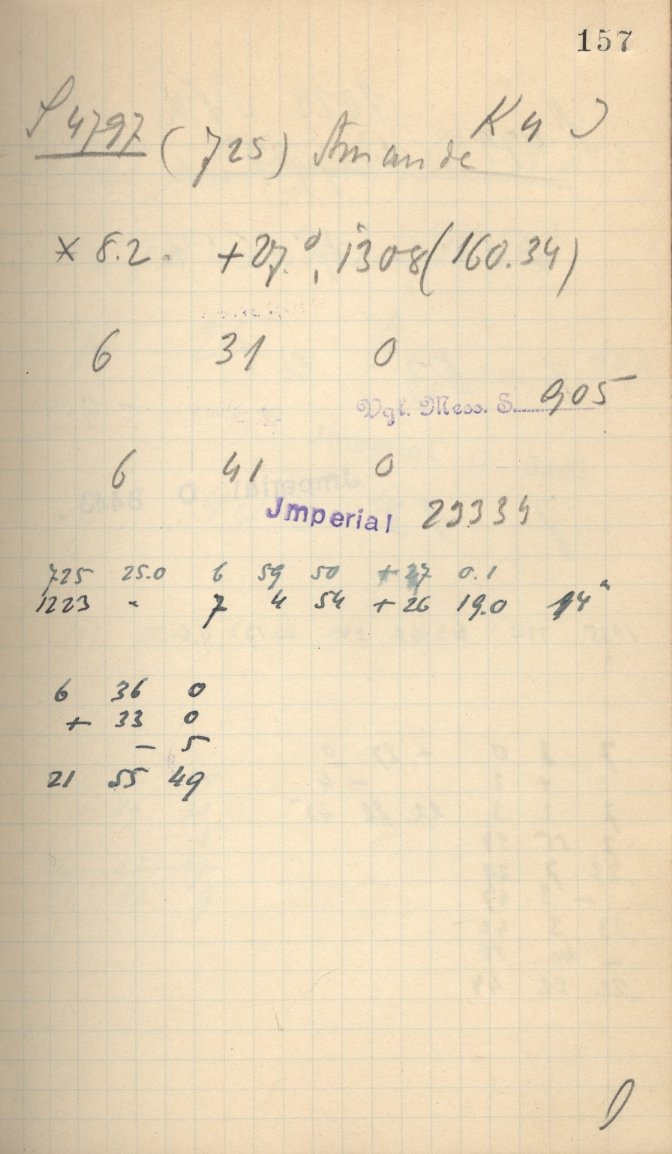 157
S 4797 (725) Amanda K 4
* 8.2. +27.°, 1308 (160.34)
6 31 0
Vgl. Mess. S. 905
6 41 0
Jmperial 29334
725 25.0 6 59 50 + 27 0.1
1223 " 7 4 54 + 26 19.0 14"
6 36 0
+ 33 0
− 5
21 55 49